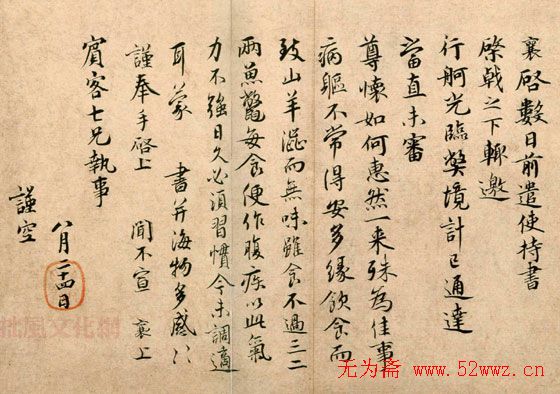 襄啓數日前遣使持書
棨戟之下輙邀
行舸光臨獘境計已通達
當直未審
尊懐如何惠然一来殊為佳事
病軀不常得安多緣飲食而
致山羊澁而無味雖食不過三二
兩魚鼈每食便作腹疾以此氣
力不強日久必須習慣今未調適
耳蒙 書并海物多感〻
謹奉手啓上 聞不宣 襄上
賓客七兄執事
八月二十四日
謹空
无为斋 www.52wwz.cn